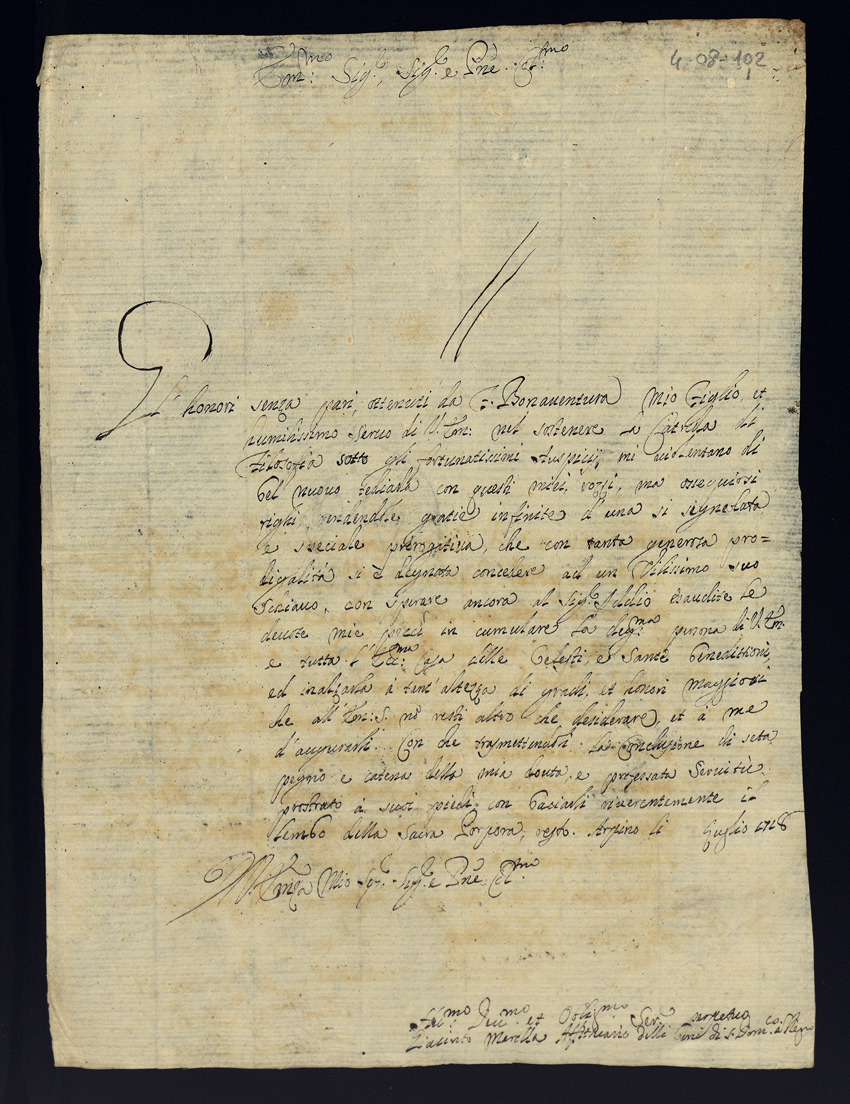 Em:mo Sig.r, Sig.r e Pne. Col:mo
4-08-102
1
Gl' honori senza pari, ottenuti da F: Bonaventura mio Figlio, et
humilissimo servo di V. Em: nel sostenere la Catreda di
Filosofia sotto gli fortunatissimi Auspicij, mi violentano di
bel nuovo tediarla con questi miei rozzi, ma ossequiosi
righi, rendendole gratie infinite d'una si segnelata
e speciale prerogativa, che con tanta generosa pro=
digalità si è degnata concedere ad un Vilissimo suo
Schiavo, con sperare ancora al Sig.r Iddio esaudite le
devote mie preci in cumulare la deg:ma persona di V. Em:
e tutta l' Ecc:ma Casa delle Celesti, e Sante Beneditioni,
ed inalzarla à tant' altezza di gradi, et honori maggiori
che all' Em: S. nō resti altro che desiderare, et à me
d'augurarli. Con che trasmettendoli la Conclusione di seta
pegno e catena della mia dovuta e professata Servitù
prostrato à suoi piedi, con baciarli riverentemente il
lembo della Sacra Porpora, resto. Arpino li Luglio 1718
V. Emza Mio Sig.r Sig.r e Pne Col:mo
Hu:mo Dev:mo et Obli:mo Ser.
Iacinto Merolla